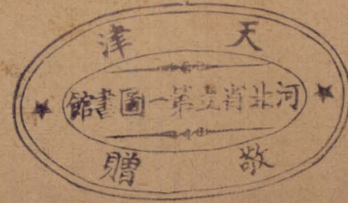 天津
河北省立第一圖書館
敬贈